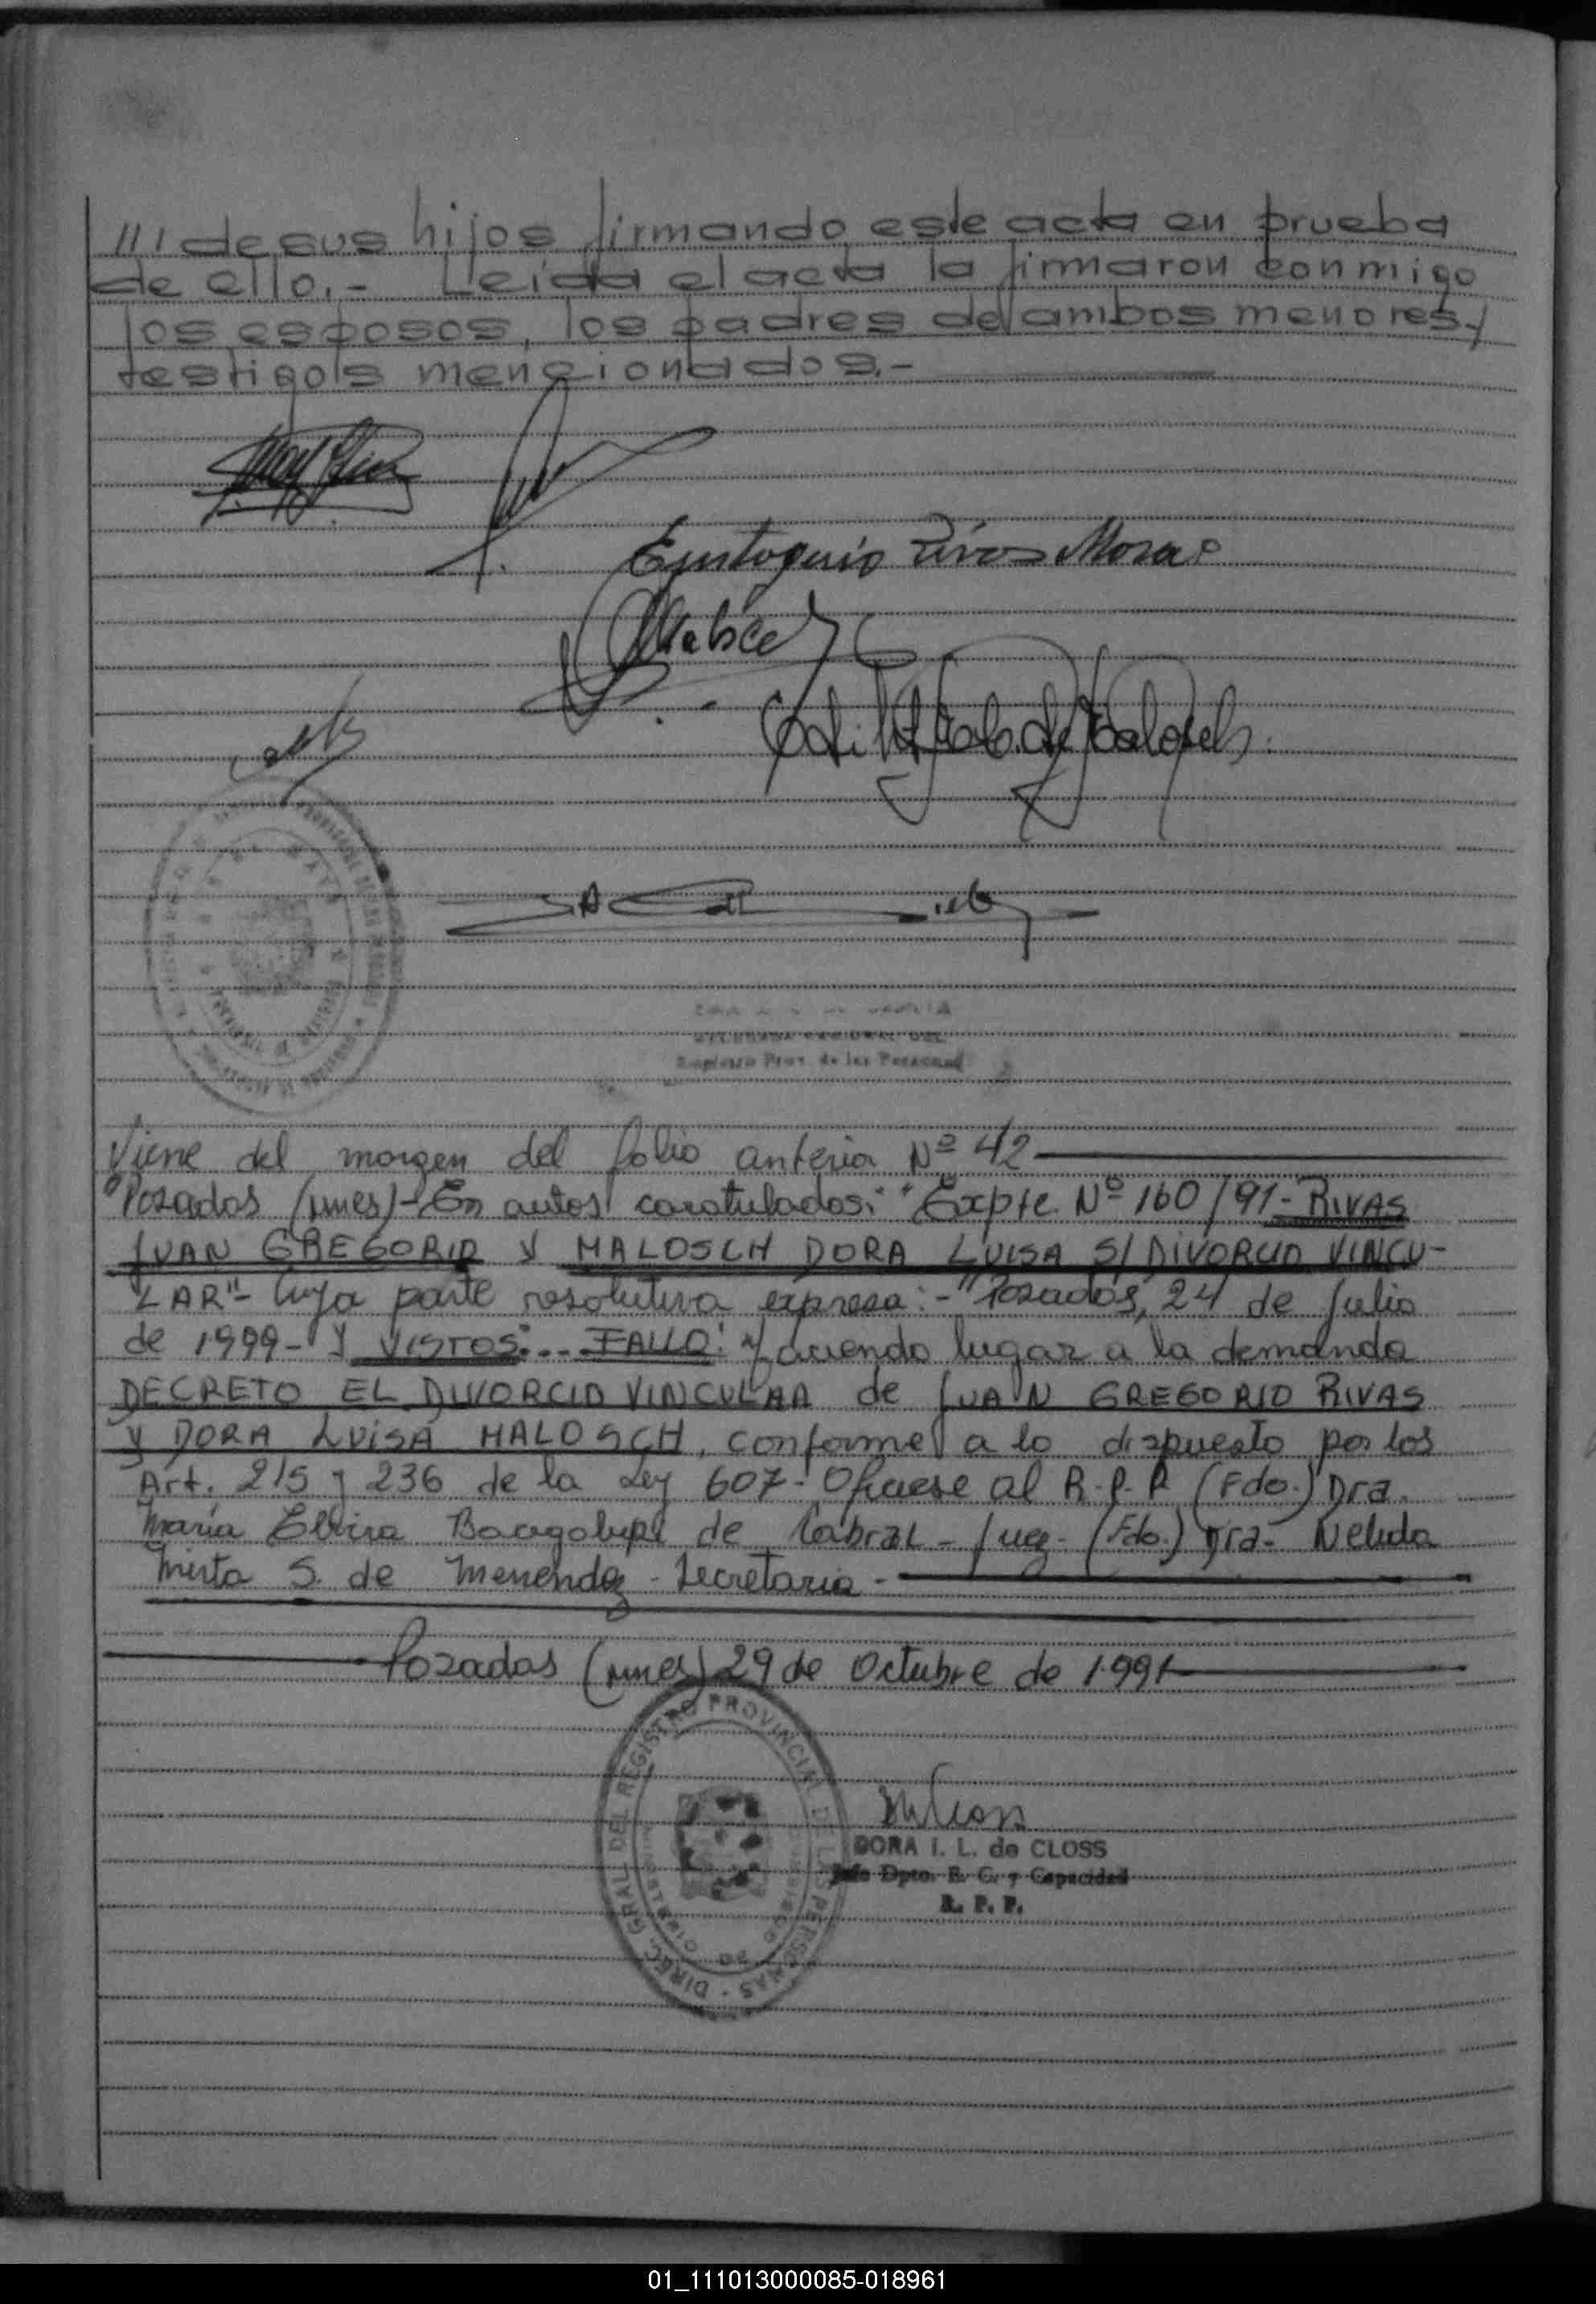 /// de sus hijos firmando este acta en prueba
de ello.- Leída el acta la firmaron conmigo
los esposos, los padres de ambos menores y
testigos mencionados.-
Eustoquio Rivas Mora
Viene del margen del folio anterior Nº 42
"Posadas (Mnes)- En autos caratulados: "Expte. Nº 160/91- RIVAS
JUAN GREGORIO Y MALOSCH DORA LUISA S/ DIVORCIO VINCU-
LAR"- Cuya parte resolutiva expresa:- "Posadas, 24 de Julio
de 1999- Y VISTOS:... FALLO: Haciendo lugar a la demanda
DECRETO EL DIVORCIO VINCULAR de JUAN GREGORIO RIVAS
Y DORA LUISA MALOSCH, conforme a lo dispuesto por los
Art. 215 y 236 de la Ley 607- Ofíciese al R.P.P. (Fdo.) Dra.
María Elvira de Cabral - Juez- (Fdo.) Dra. Nelida
Mirta S. de Menendez - Secretaria -
Posadas (Mnes) 29 de Octubre de 1.991
DIREC. GRAL. DEL REGISTRO PROVINCIAL DE LAS PERSONAS
DORA I. L. de CLOSS
Jefe Dpto. E. C. y Capacidad
R. P. P.
Registro Prov. de las Personas
01_111013000085-018961